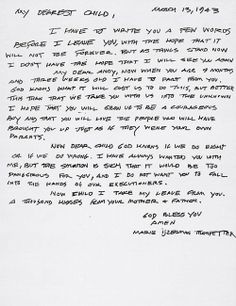 MY DEAREST CHILD, MARCH 13, 1943
I HAVE TO WRITE YOU A FEW WORDS
BEFORE I LEAVE YOU WITH THE HOPE THAT IT
WILL NOT BE FOREVER. BUT AS THINGS STAND NOW
I DON'T HAVE THE HOPE THAT I WILL SEE YOU AGAIN
MY DEAR ANDY, NOW WHEN YOU ARE 9 MONTHS
AND THREE WEEKS OLD I HAVE TO PART FROM YOU,
GOD KNOWS WHAT IT WILL COST US TO DO THIS, BUT BETTER
THIS THAN THAT WE TAKE YOU WITH US INTO THE UNKNOWN
I HOPE THAT YOU WILL GROW UP TO BE A COURAGEOUS
BOY AND THAT YOU WILL LOVE THE PEOPLE WHO WILL HAVE
BROUGHT YOU UP JUST AS IF THEY WERE YOUR OWN
PARENTS.
NOW DEAR CHILD GOD KNOWS IF WE DO RIGHT
OR IF WE DO WRONG. I HAVE ALWAYS WANTED YOU WITH
ME, BUT THE SITUATION IS SUCH THAT IT WOULD BE TOO
DANGEROUS FOR YOU, AND I DO NOT WANT YOU TO FALL
INTO THE HANDS OF OUR EXECUTIONERS.
NOW CHILD I TAKE MY LEAVE FROM YOU.
A THOUSAND KISSES FROM YOUR MOTHER & FATHER.
GOD BLESS YOU
AMEN